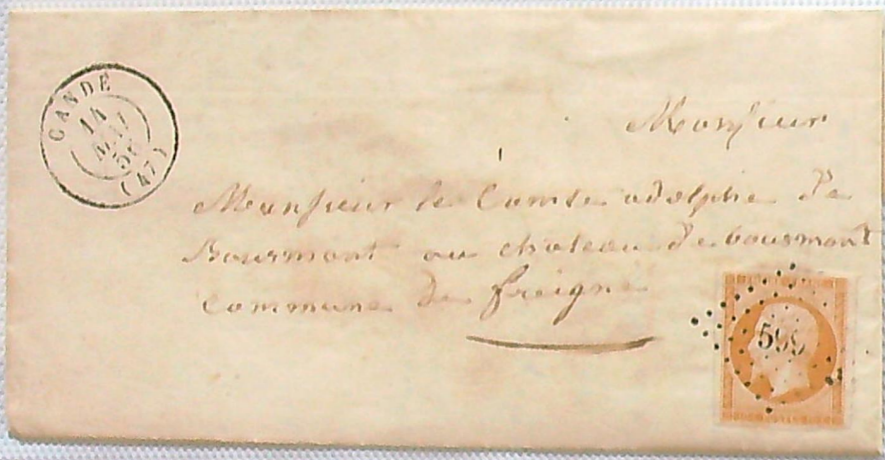 CANDÉ
14
MAI
(47)
Monsieur
Monsieur le Comte adolphe De
Bourmont au chateau de bourmont
Commune De freigné
599